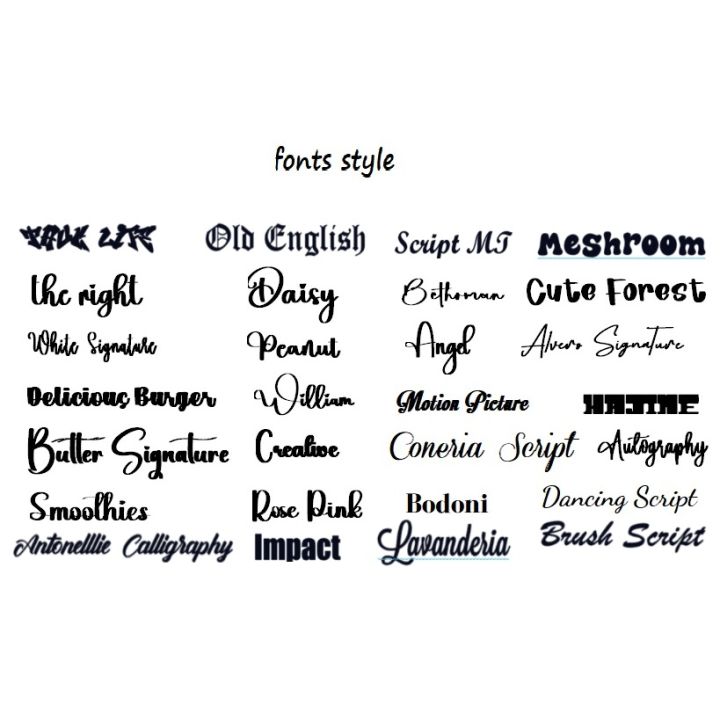 fonts style
THUG LIFE Old English Script MT Meshroom
the right Daisy Bethoman Cute Forest
White Signature Peanut Angel Alvero Signature
Delicious Burger William Motion Picture HAJIME
Butter Signature Creative Coneria Script Autography
Smoothies Rose Pink Bodoni Dancing Script
Antonelllie Calligraphy Impact Lavanderia Brush Script